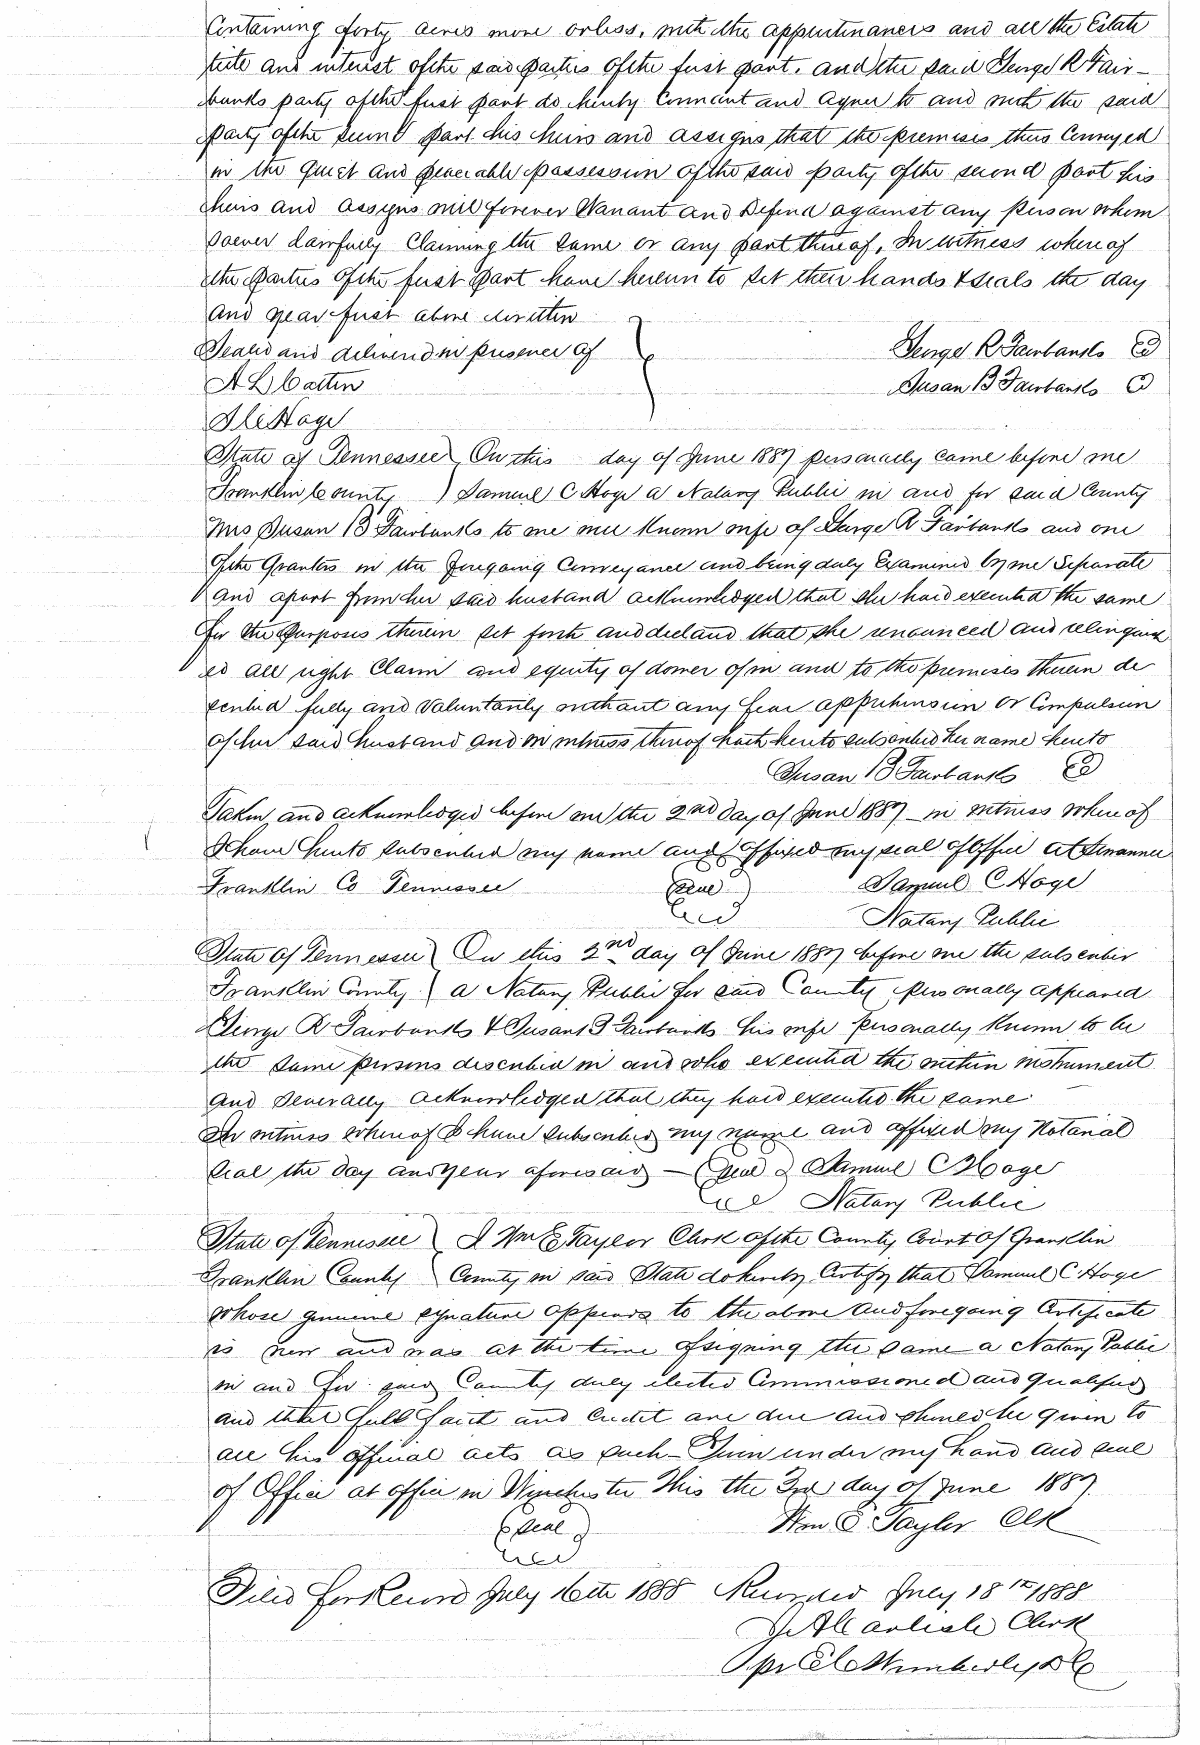 Containing forty acres more or less, with the appurtinances and all the Estate
title and interest of the said parties of the first part. and the said George R Fair-
banks party of the first part do hereby Covenant and agree to and with the said
party of the second part his heirs and assigns that the premises thus Conveyed
in the quiet and peaceable possession of the said party of the second part his
heirs and assigns will forever Warrant and Defend against any person whom
soever lawfully Claiming the same or any part thereof, In witness whereof
the parties of the first part have hereunto set their hands & seals the day
and year first above written
Sealed and delivered in presence of George R Fairbanks
A L Susan B Fairbanks
Hoge
State of Tennessee On this day of June 1887 personally came before me
Franklin County ) Samuel C Hoge a Notary Public in and for said County
Mrs Susan B Fairbanks to me well Known wife of George R Fairbanks and one
of the Grantors in the foregoing Conveyance and being duly Examined by me Separate
and apart from her said husband acknowledged that she had executed the same
for the Purposes therein set forth and declared that she renounced and relinquish
ed all right Claim and equity of dower of in and to the premises therein de
scribed fully and Voluntarily without any fear apprehension or Compulsion
of her said husband and in witness thereof hath hereto subscribed her name hereto
Susan B Fairbanks
Taken and acknowledged before me the 2nd day of June 1887 - in witness whereof
I have hereto subscribed my name and affixed my seal of Office at Sewannee
Franklin Co Tennessee (Seal) Samuel C Hoge
Notary Public
State of Tennessee ) On this 2nd day of June 1887 before me the subscriber
Franklin County ) a Notary Public for said County personally appeared
George R Fairbanks & Susan B Fairbanks his wife personally Known to be
the same persons described in and who executed the within instrument
and severally acknowledged that they had executed the same
In witness whereof I have subscribed my name and affixed my Notarial
seal the day and year aforesaid — (Seal) Samuel C Hoge
Notary Public
State of Tennessee ) I Wm E Taylor Clerk of the County Court of Franklin
Franklin County ) County in said State do hereby Certify that Samuel C Hoge
whose genuine signature appears to the above and foregoing Certificate
is now and was at the time of signing the same a Notary Public
in and for said County duly elected Commissioned and qualified
and that full faith and credit are due and should be given to
all his official acts as such - Given under my hand and seal
of Office at office in Winchester This the 3rd day of June 1887
(Seal) Wm E. Taylor Clk
Filed for Record July 16th 1888 Recorded July 18th 1888
Carlisle Clerk
Wimberly D C